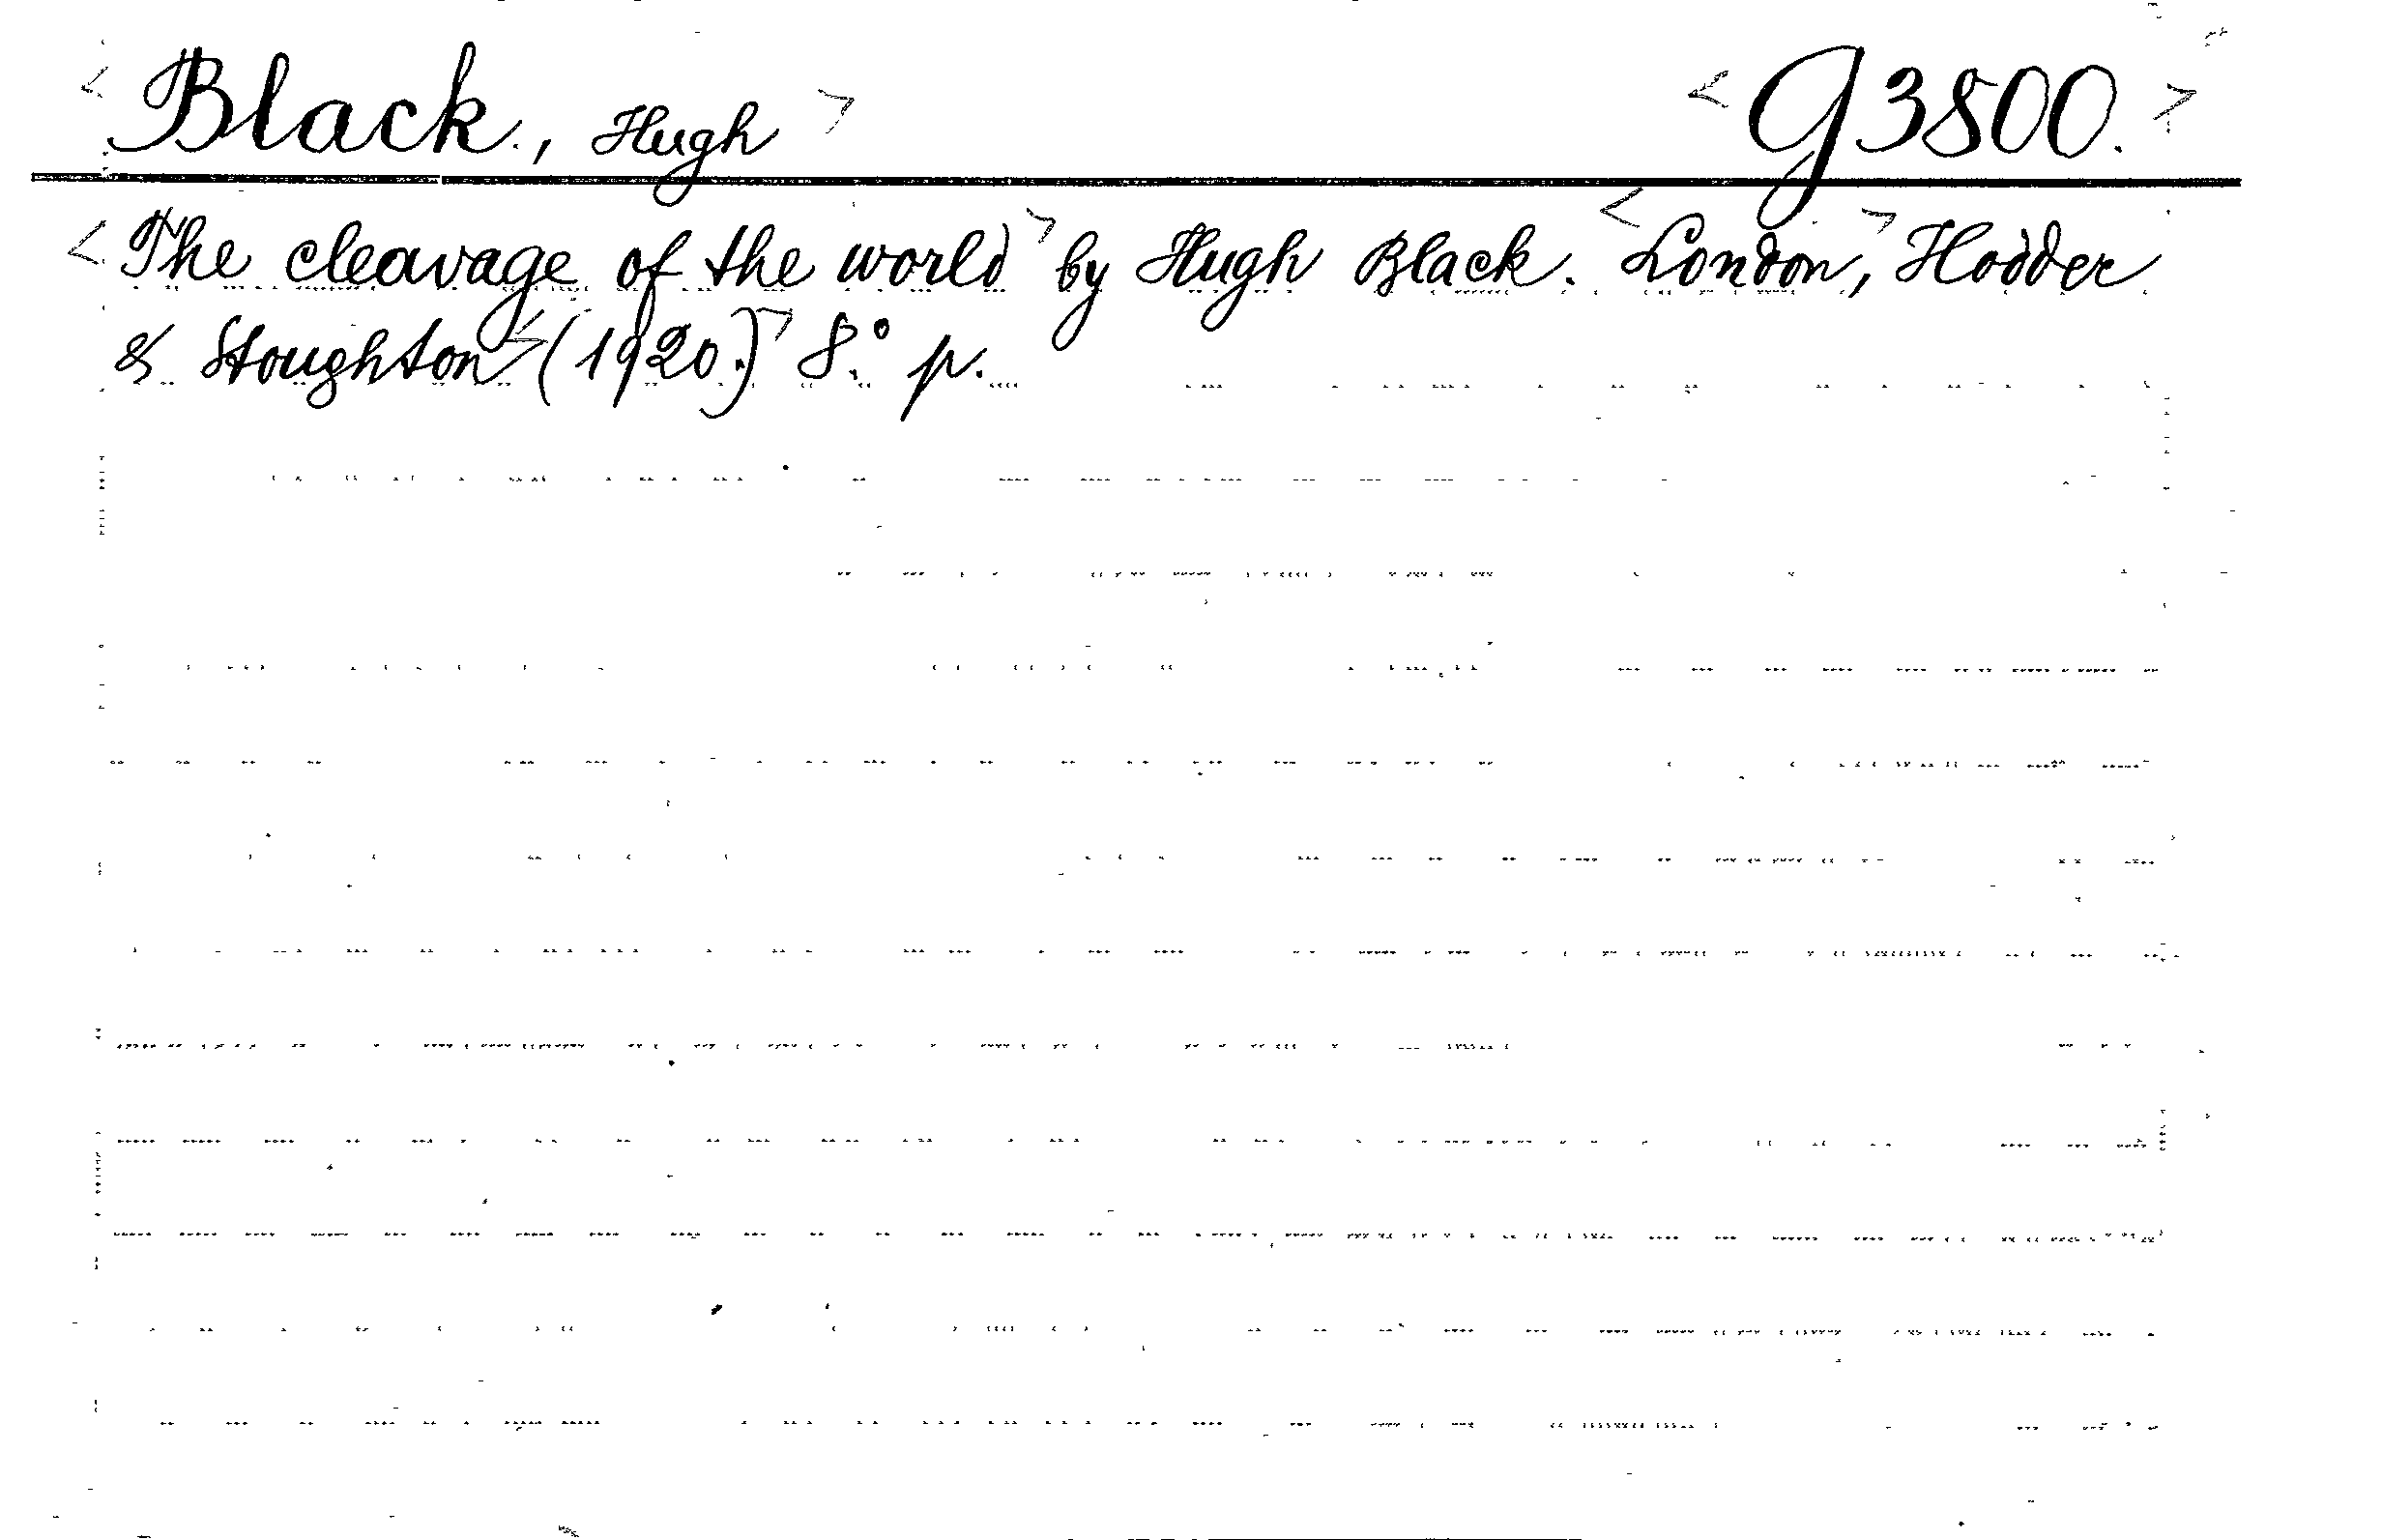 < Black., Hugh > < G3800. >
< The cleavage of the world > by Hugh Black. < London, > Hodder
& Stoughton < (1920.) > 8.° p.